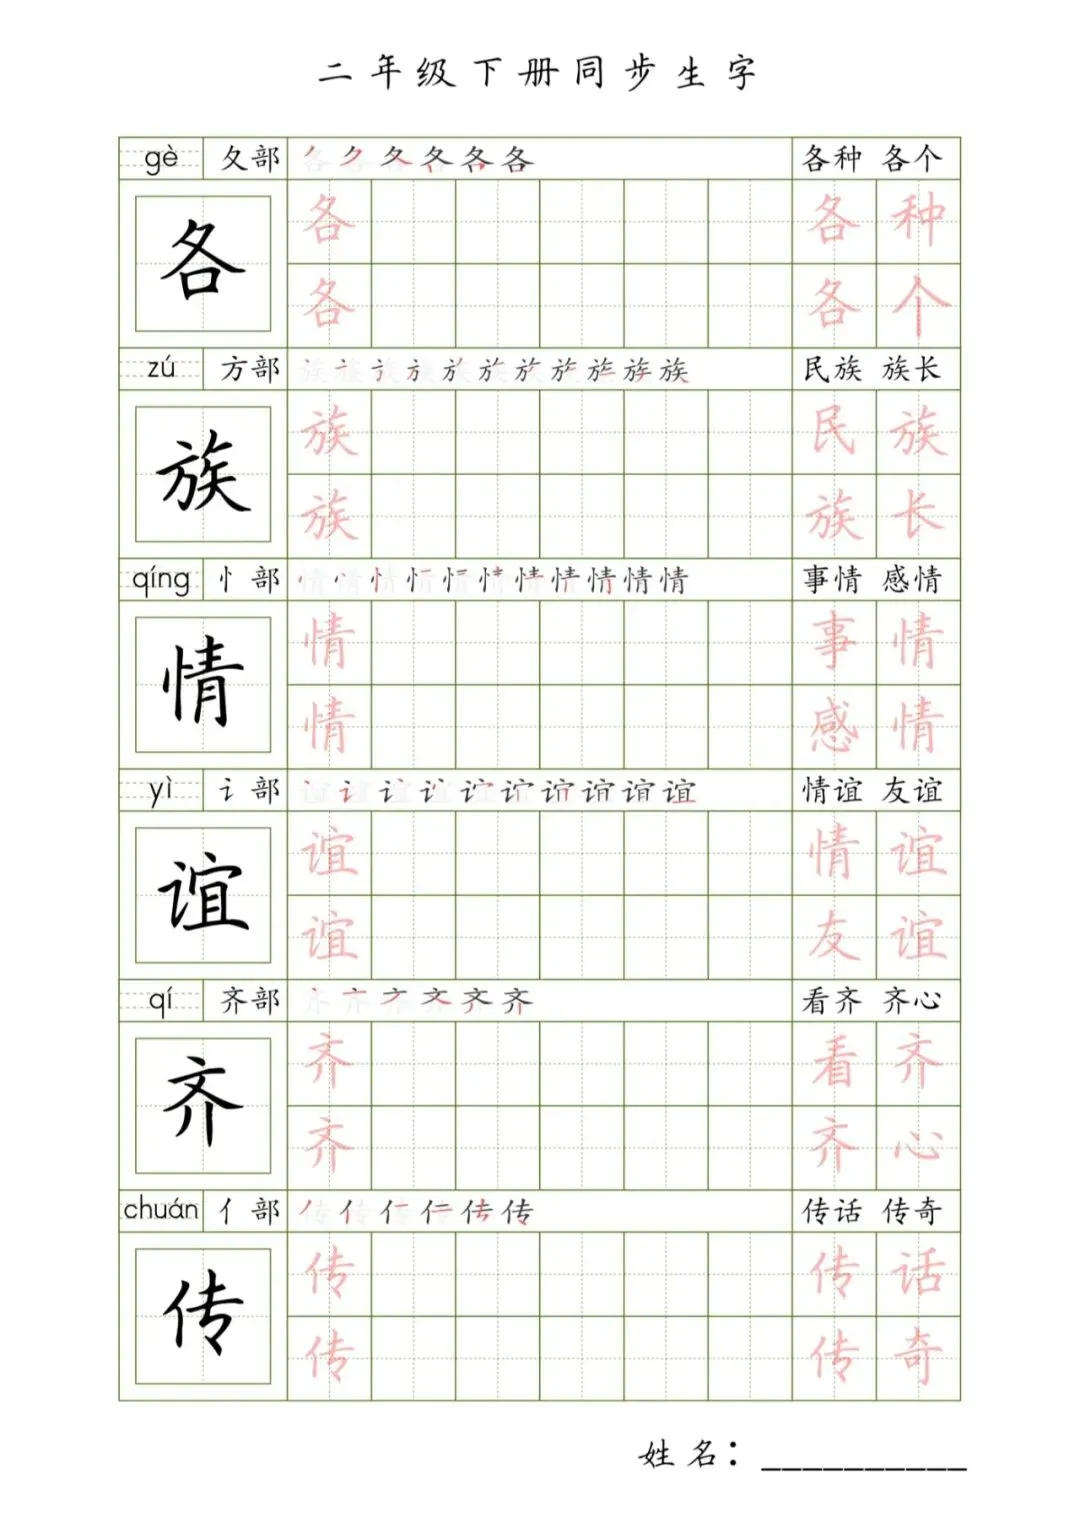 二年级下册同步生字
gè 夂部 各各各各各各 各种 各个
各 各 各 种
各 各 个
zú 方部 族族族族族族族族族族族 民族 族长
族 族 民 族
族 族 长
qíng 忄部 情情情情情情情情情情情 事情 感情
情 情 事 情
情 感 情
yì 讠部 谊谊谊谊谊谊谊谊谊谊 情谊 友谊
谊 谊 情 谊
谊 友 谊
qí 齐部 齐齐齐齐齐齐 看齐 齐心
齐 齐 看 齐
齐 齐 心
chuán 亻部 传传传传传传 传话 传奇
传 传 传 话
传 传 奇
姓名：__________